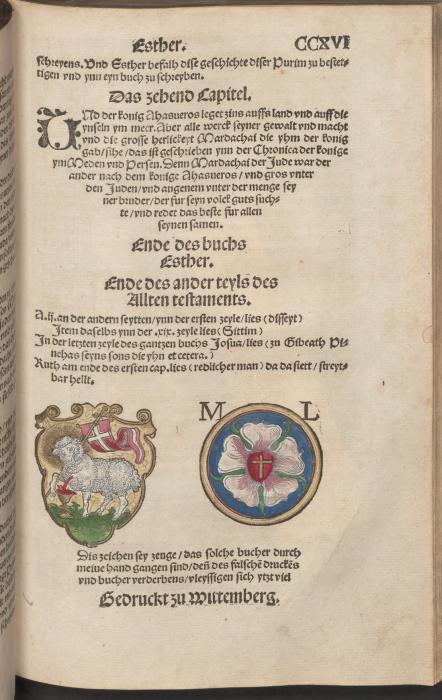 Esther. CCXVI
schreyens. Vnd Esther befalh dise geschichte diser Purim zu bestet-
tigen vnd ynn eyn buch zu schreyben.
Das zehend Capitel.
UNd der konig Ahasueros leget zins auffs land vnd auff die
ynseln ym meer. Aber alle werck seyner gewalt vnd macht
vnd die grosse herlickeyt Mardachai die yhm der konig
gab/sihe/das ist geschrieben ynn der Chronica der konige
ym Meden vnd Persen. Denn Mardachai der Jude war der
ander nach dem konige Ahasueros/vnd gros vnter
den Juden/vnd angenem vnter der menge sey
ner bruder/der fur seyn volck guts such-
te/vnd redet das beste fur allen
seynen samen.
Ende des buchs
Esther.
Ende des ander teyls des
Allten testaments.
A.ij. an der andern seytten/ynn der ersten zeyle/lies (disseyt)
Item daselbs ynn der .xix. zeyle lies (Sittim)
In der letzten zeyle des gantzen buchs Josua/lies (zu Gibeath Pi-
nehas seyns sons die yhn et cetera.)
Ruth am ende des ersten cap. lies (redlicher man) da da stett/streyt-
bar hellt.
M L
Dis zeichen sey zeuge/das solche bucher durch
meine hand gangen sind/deñ des falschē druckēs
vnd bucher verderbens/vleyssigen sich ytzt viel
Gedruckt zu Wittemberg.